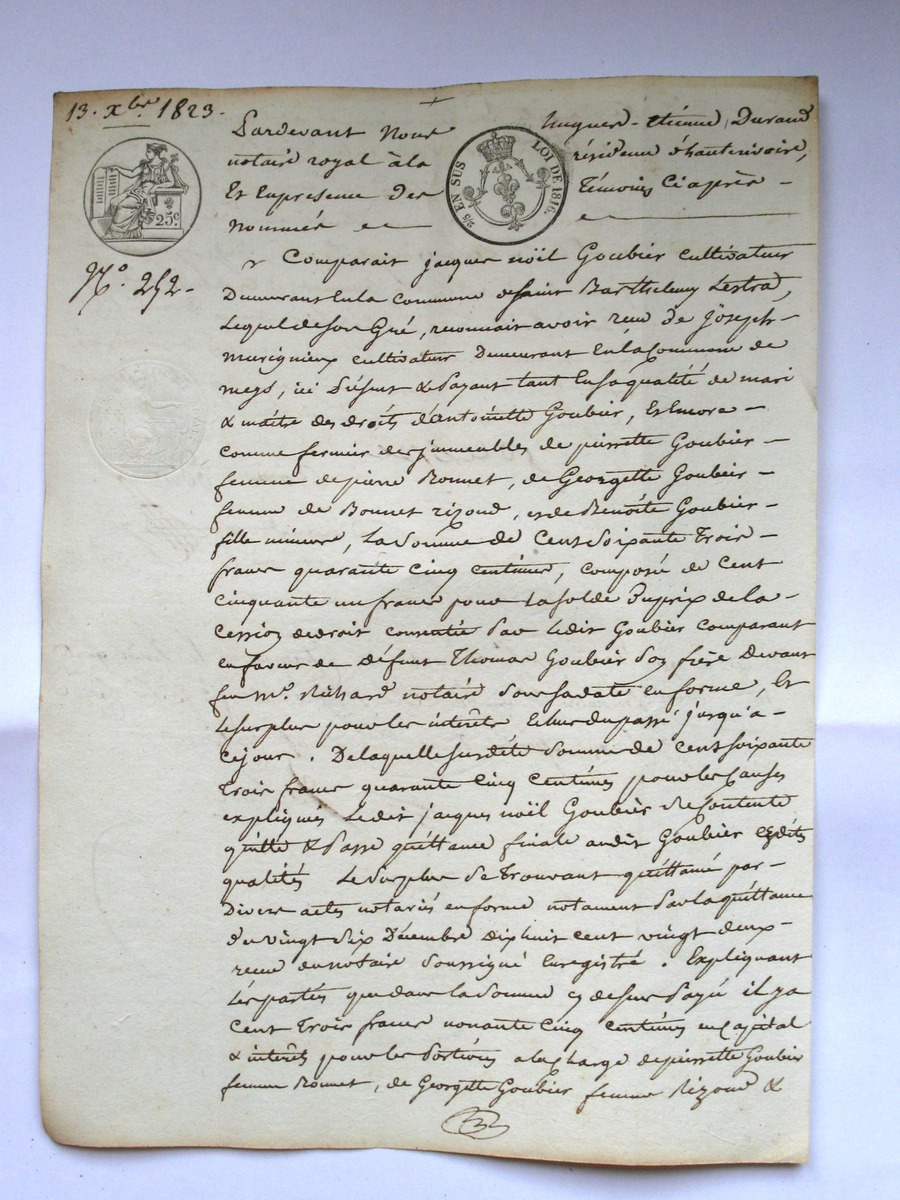 13. Xbre 1823.
Pardevant Nous Hugues-Etienne Durand
notaire royal à la résidence d'hauterivoire,
Et En presence des Témoins Ci après -
Nommés
25c.
25 EN SUS LOI DE 1816.
No. 252-
Comparait jacques nöil Goubier cultivateur
Demeurant En la commune de saint Barthelemy Lestra,
Lequel de son Gré, reconnait avoir reçu de joseph-
murigneux cultivateur Demeurant En la Commune de
meys, ici Présent & Payant tant En sa qualité de mari
& maitre des droits d'antoinette Goubier, Et Encore -
comme fermier des jmmeubles de pierrette Goubier -
femme de pierre Ronnet, de Georgette Goubier -
femme de Bonnet rizoud, et de Benoite Goubier -
fille mineure, La Somme de Cent Soixante Trois -
francs quarante Cinq centimes, composée de Cent
cinquante un francs pour La solde du prix de la -
cession de droit consentie Par Ledit Goubier comparant
en faveur de Défunt Thomas Goubier Son frère Devant
feu Me. Richard notaire Sous sa date en forme, Et
Le surplus pour les intérêts Echus du passé jusqu'à -
ce jour. De laquelle susdite Somme de Cent soixante
Trois francs quarante Cinq Centimes pour les Causes
expliquées Ledit jacques nöel Goubier Se Contente
quitte & Passe quittance finale audit Goubier esdites
qualités Le Surplus Se Trouvant quittancé par -
Divers actes notariés en forme notament Par la quittance
du vingt Six Décembre Dix huit cent vingt deux -
reçue du notaire Soussigné Enregistré. Expliquant
Les parties que dans la Somme cy dessus Payée il y a
Cent Trois francs nonante Cinq Centimes en Capital
& intérêts pour les Portions a la Charge de pierrette Goubier
femme Ronnet, de Georgette Goubier femme Rizoud &